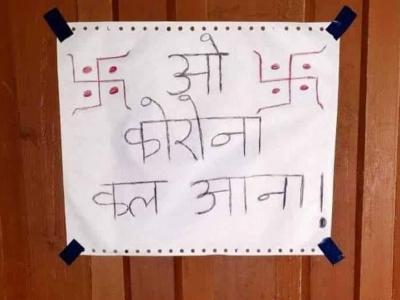 ओ
कोरोना
कल आना!